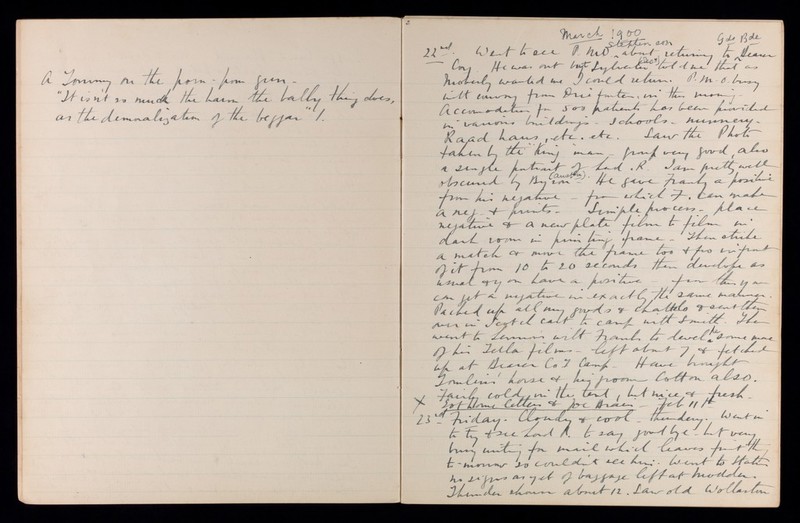 A Tommy on the pom-pom gun -
"It isn't so much the harm the bally thing does,
as the demoralization of the beggar"!
2
March 1900
Gde Bde
22nd. Went to see P.M.O. about returning to Bearer
Stephenson
Coy. He was out but Sylvester told me that as
Moberly wanted me I could return. P.M.O. busy
with convoy from Driefontein in the morning.
Accomodation for 500 patients has been provided
in various buildings - Schools - nunnery -
Raad haus, etc. etc. Saw the Photo
taken by the "King" man - group very good, also
a single portrait of Lord R. I am pretty well
obscured by Byron. He gave Franks a positive
from his negative - from which F. can make
a neg. & prints - Simple process - place
negative & a new plate film to film in
dark room in printing frame - Then strike
a match & move the frame too & fro in front
of it from 10 to 20 seconds then develope as
usual & you have a positive - from this you
can get a negative in exactly the same manner.
Packed up all my goods & chattels & sent them
over in Scotch cart to camp with Smith. Then
went to with Franks to develope some more
of his films - left about 7 & fetched
up at Bearer Co's Camp. Have brought
Tomlins' horse & his groom Cotton also.
Fairly cold in the tent, but nice & fresh.
X Got Home letters & Feb 11th
23rd Friday. Cloudy & cool - thundery. Went in
to try & see Lord R. to say goodbye - but very
busy writing for mail which leaves first thing
to-morrow so couldn't see him. Went to Station
no signs as yet of baggage left at Modder.
Thunder shower about 12. Saw old Wollaston